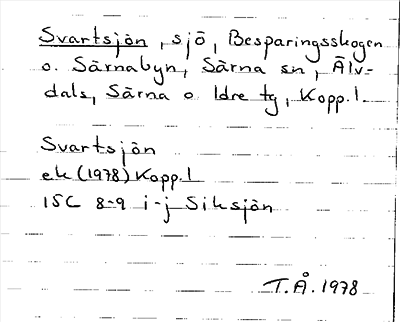 Svartsjön, sjö, Besparingsskogen
o. Särnabyn, Särna sn, Älv-
dals, Särna o Idre tg, Kopp.l.
Svartsjön
ek (1978) Kopp.l
15C 8-9 i-j Siksjön
T.Å. 1978